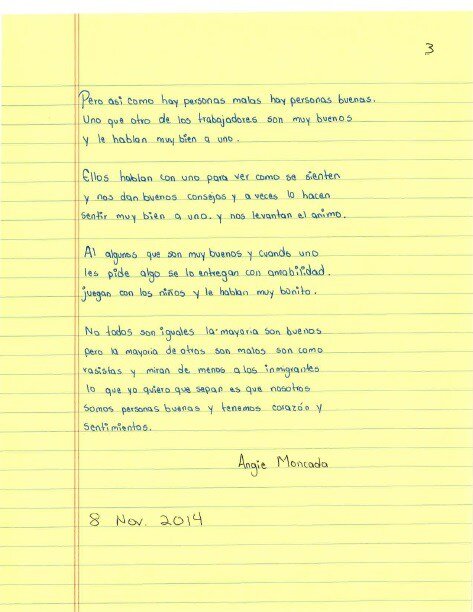 3
Pero asi como hay personas malas hay personas buenas.
Uno que otro de los trabajadores son muy buenos
y le hablan muy bien a uno.
Ellos hablan con uno para ver como se sienten
y nos dan buenos consejos y a veces lo hacen
sentir muy bien a uno. y nos levantan el animo.
Al algunos que son muy buenos y cuando uno
les pide algo se lo entregan con amabilidad.
juegan con los niños y le hablan muy bonito.
No todos son iguales la mayoria son buenos
pero la mayoria de otros son malos son como
rasistas y miran de menos a los inmigrantes
lo que yo quiero que sepan es que nosotros
somos personas buenas y tenemos corazón y
sentimientos.
Angie Moncada
8 Nov. 2014